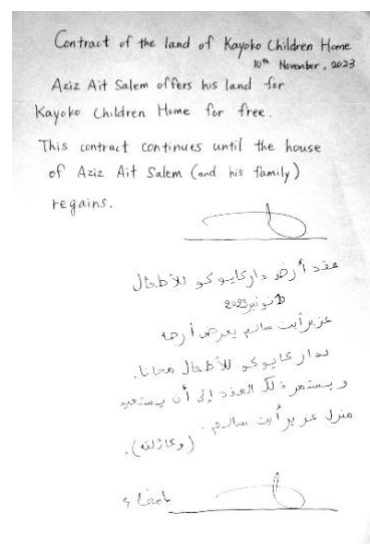 Contract of the land of Kayoko Children Home
10th November, 2023
Aziz Ait Salem offers his land for
Kayoko Children Home for free.
This contract continues until the house
of Aziz Ait Salem (and his family)
regains.
عقد أرض دار كايوكو للأطفال
نونبر 2023
عزيز أيت سالم يعرض أرضه
لدار كايوكو للأطفال مجانا.
و يستمر ذلك العقد إلى أن يستعيد
منزل عزيز أيت سالم.
(وعائلته).
إمضاء